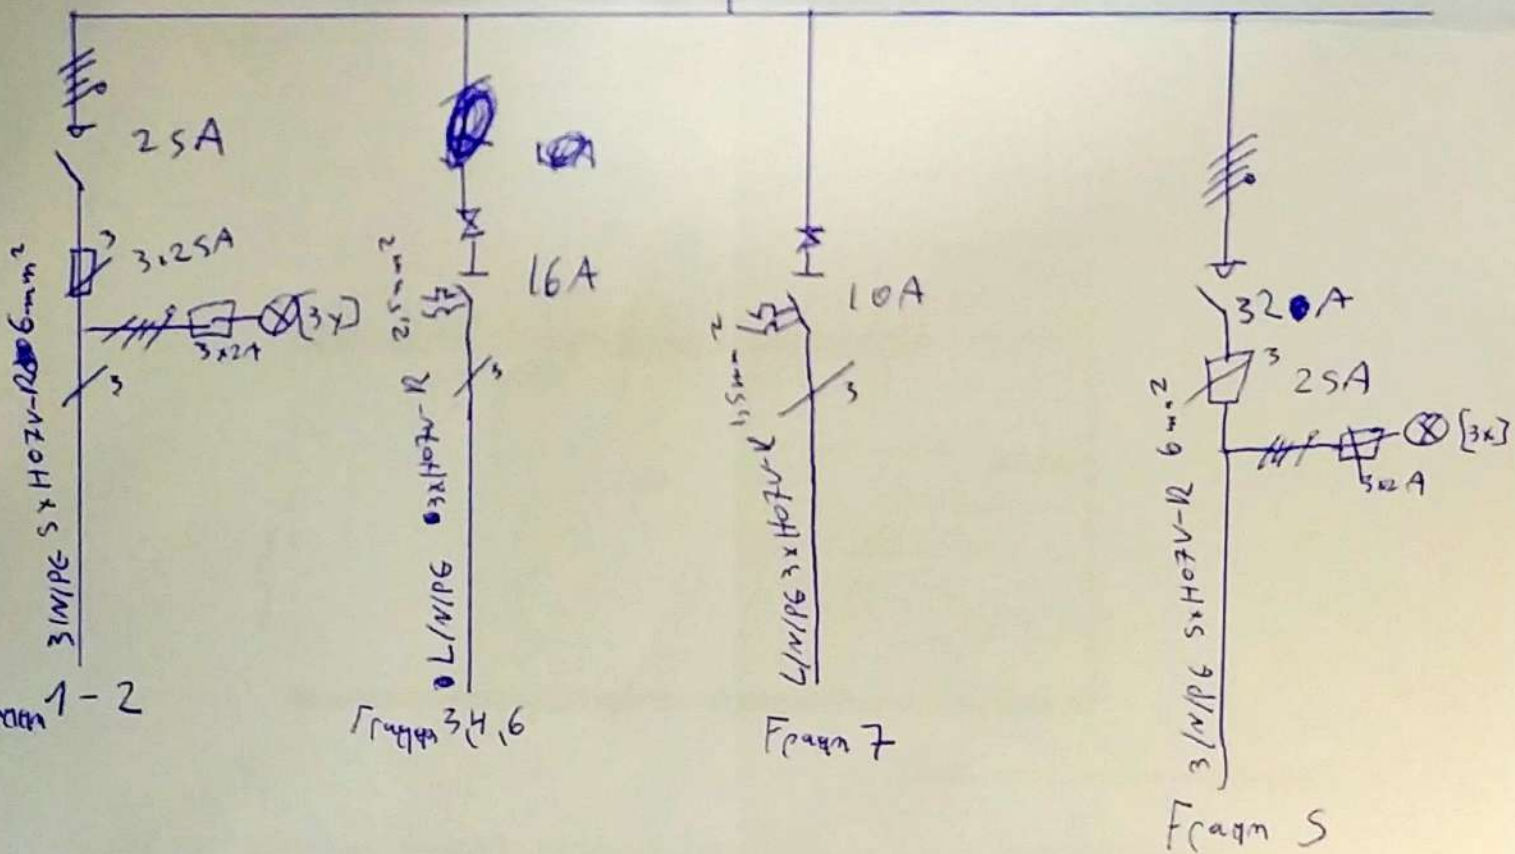 25A
3.25A
3
3x2A
(3x)
3
3/N/PE 5xH07V-R 6mm²
1-2
16A
3
L/N/PE 3xH07V-R 2,5mm²
Γραμμ 3,4,6
10A
3
L/N/PE 3xH07V-R 1,5mm²
Γραμμ 7
32A
3
25A
3x2A
(3x)
3/N/PE 5xH07V-R 6mm²
Γραμμ 5